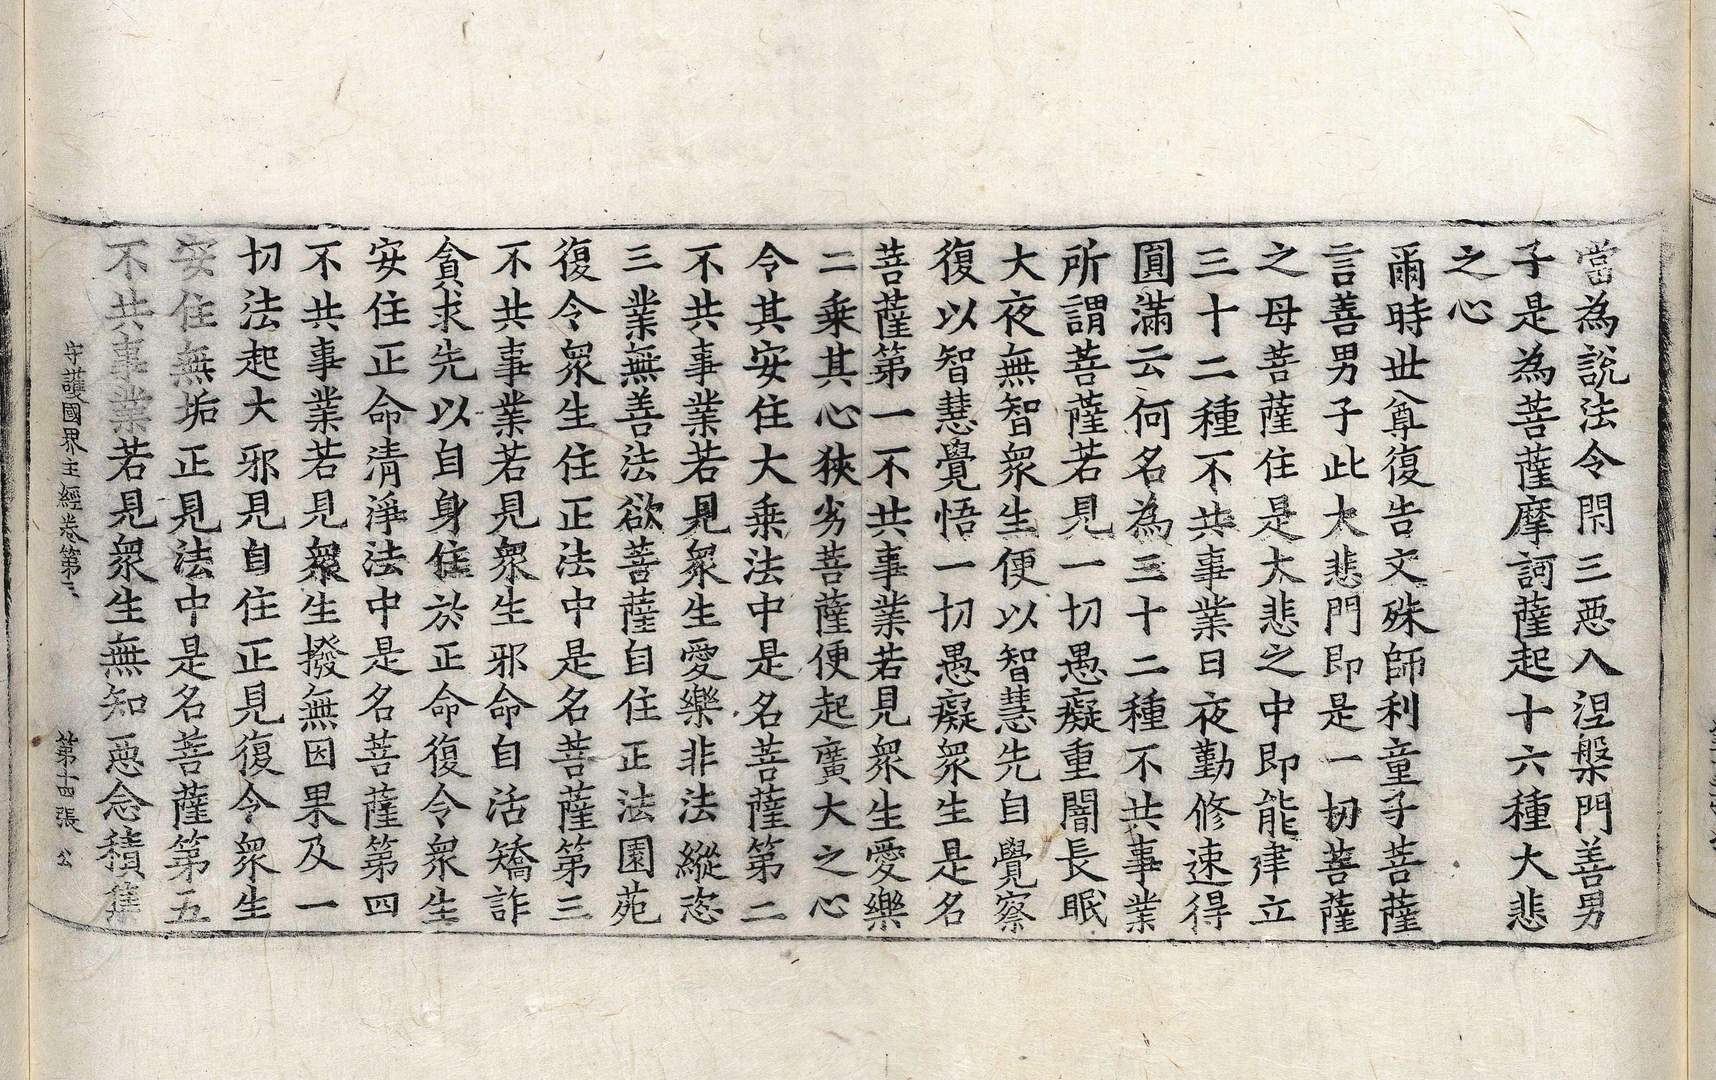 當為說法令閇三惡入涅槃門善男
子是為菩薩摩訶薩起十六種大悲
之心
爾時世尊復告文殊師利童子菩薩
言善男子此大悲門即是一切菩薩
之母菩薩住是大悲之中即能建立
三十二種不共事業日夜勤修速得
圓滿云何名為三十二種不共事業
所謂菩薩若見一切愚癡重闇長眠
大夜無智衆生便以智慧先自覺察
復以智慧覺悟一切愚癡衆生是名
菩薩第一不共事業若見衆生愛樂
二乗其心狹劣菩薩便起廣大之心
令其安住大乗法中是名菩薩第二
不共事業若見衆生愛樂非法縱恣
三業無善法欲菩薩自住正法園苑
復令衆生住正法中是名菩薩第三
不共事業若見衆生邪命自活矯詐
貪求先以自身住於正命復令衆生
安住正命清淨法中是名菩薩第四
不共事業若見衆生撥無因果及一
切法起大邪見自住正見復令衆生
安住無垢正見法中是名菩薩第五
不共事業若見衆生無知惡念積集
守護國界主經卷第三 第十四張 公